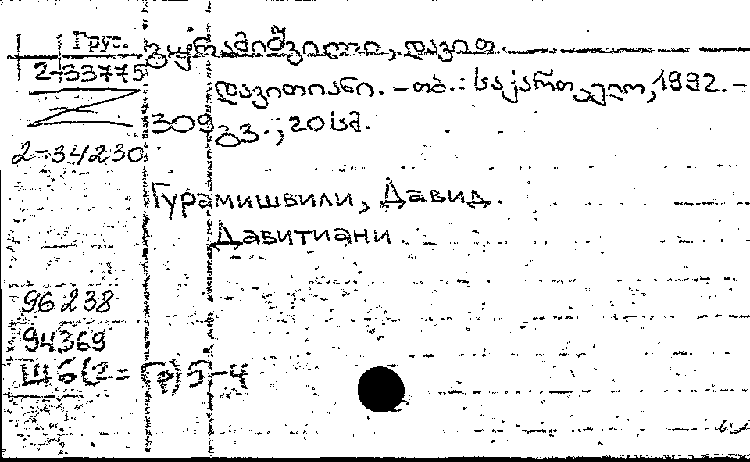 Грус.
გურამიშვილი, დავით.
2-33775
დავითიანი. – თბ.: საქართველო, 1992. –
309 გვ.; 20 სმ.
2-34230
Гурамишвили, Давид.
Давитиани.
96238
94369
Ш6(2=Гр)5-4